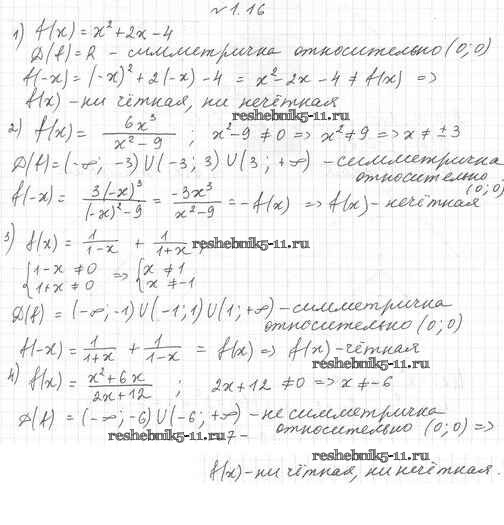 №1.16
1) f(x) = x² + 2x - 4
D(f) = R - симметрична относительно (0; 0)
f(-x) = (-x)² + 2(-x) - 4 = x² - 2x - 4 ≠ f(x) =>
f(x) - ни чётная, ни нечётная
reshebnik5-11.ru
2) f(x) = 6x³ / (x² - 9) ; x² - 9 ≠ 0 => x² ≠ 9 => x ≠ ±3
D(f) = (-∞; -3) U (-3; 3) U (3; +∞) - симметрична
относительно (0; 0)
f(-x) = 3(-x)³ / ((-x)² - 9) = -3x³ / (x² - 9) = -f(x) => f(x) - нечётная
3) f(x) = 1/(1-x) + 1/(1+x) ; reshebnik5-11.ru
{1-x ≠ 0 => {x ≠ 1
{1+x ≠ 0 {x ≠ -1
D(f) = (-∞; -1) U (-1; 1) U (1; +∞) - симметрична
относительно (0; 0)
f(-x) = 1/(1+x) + 1/(1-x) = f(x) => f(x) - чётная
reshebnik5-11.ru
4) f(x) = (x² + 6x) / (2x + 12) ; 2x + 12 ≠ 0 => x ≠ -6
D(f) = (-∞; -6) U (-6; +∞) - не симметрична
относительно (0; 0) =>
reshebnik5-11.ru 7 -
reshebnik5-11.ru
f(x) - ни чётная, ни нечётная.